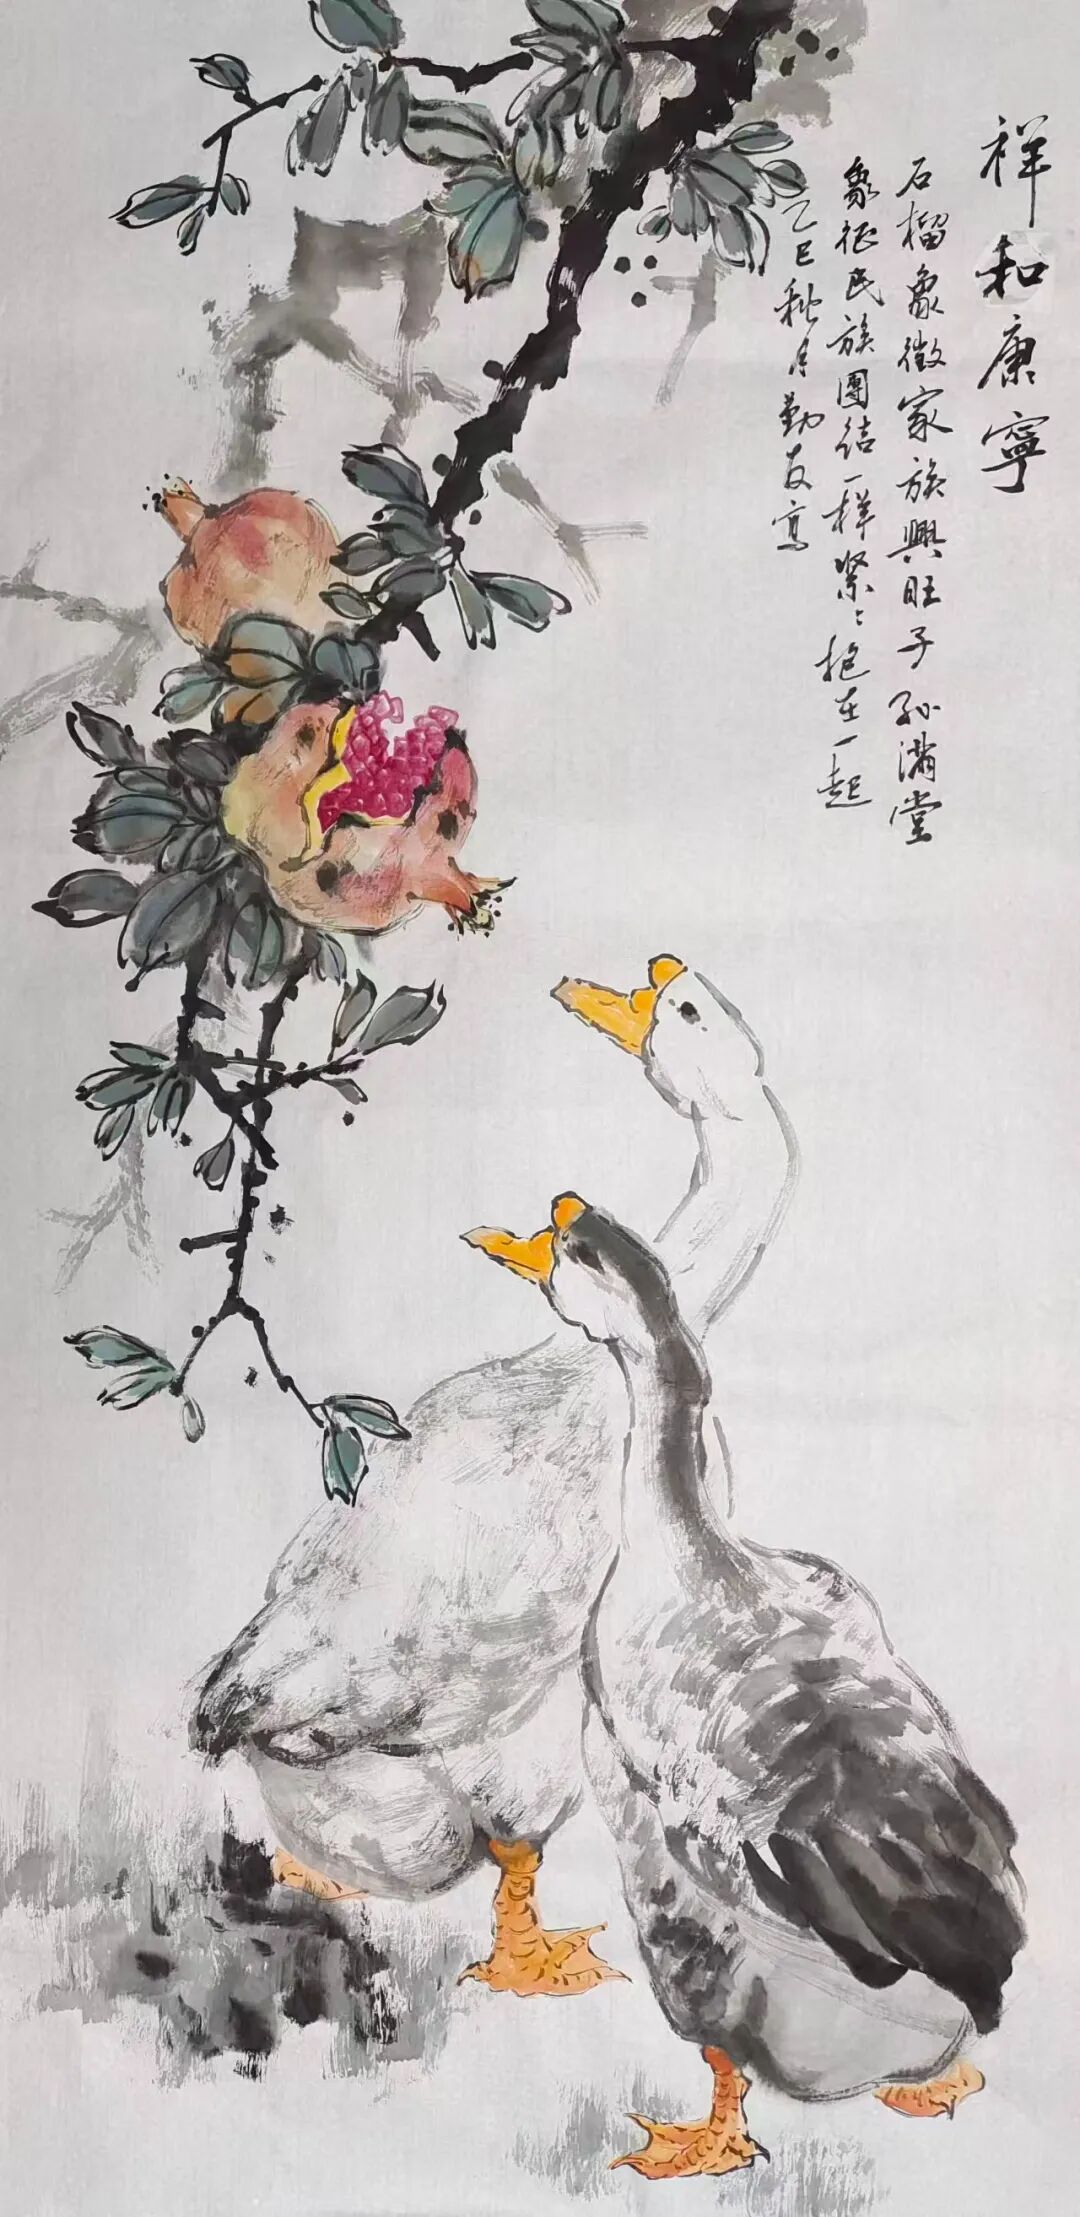 祥和康寧
石榴象徵家族興旺子孙滿堂
象征民族團结一样紧〻抱在一起
乙巳秋月勤友寫